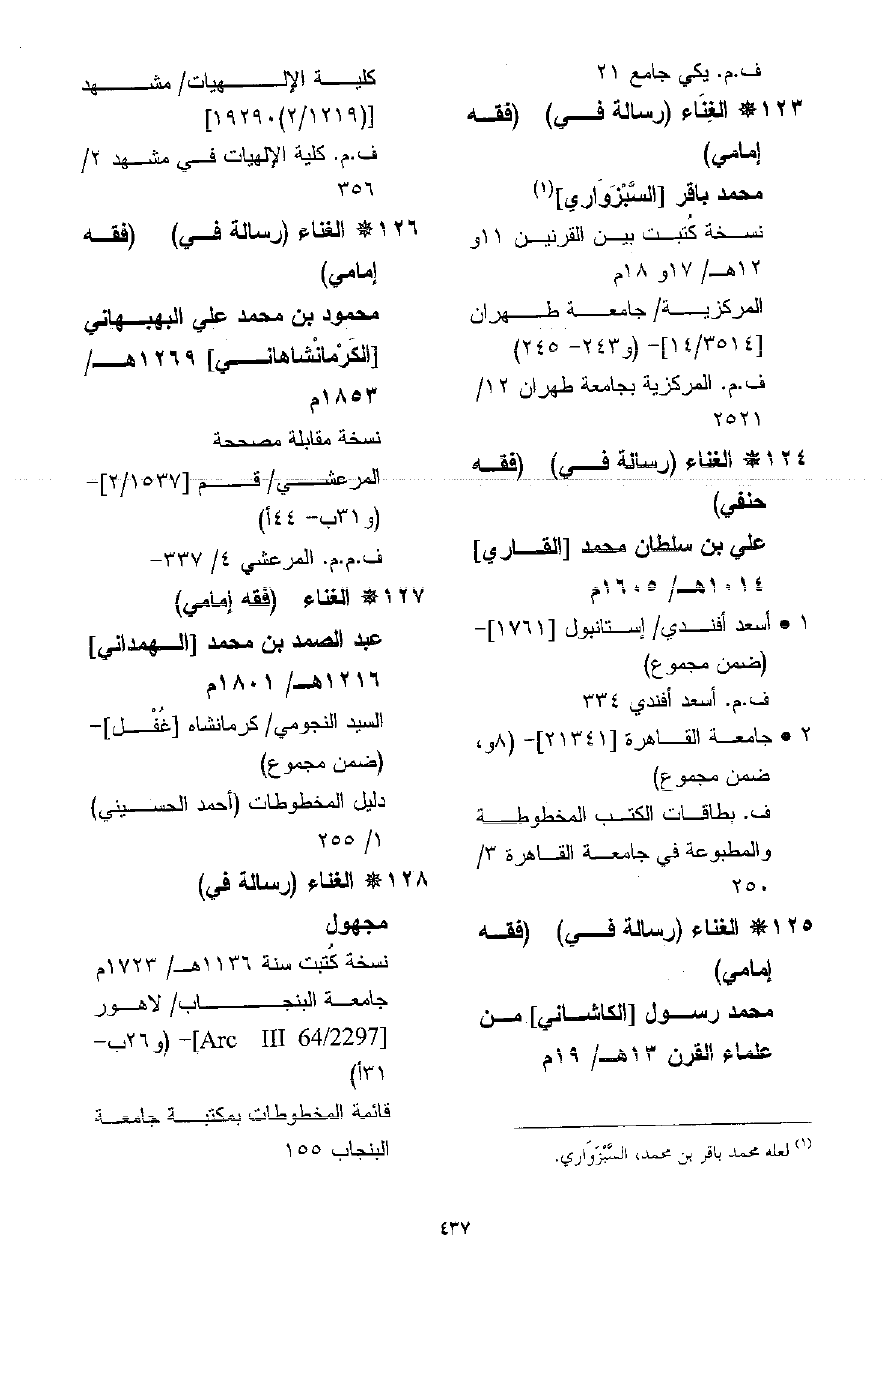 ف.م. يكي جامع ٢١
١٢٣* الغِنَاء (رسالة فـي) (فقـه
إمامي)
محمد باقر [السَّبْزَوَاري](١)
نسـخة كُتبـت بيـن القرنيـن ١١و
١٢هـ/ ١٧و ١٨م
المركزيـة/ جامعـة طـهران
[١٤/٣٥١٤]- (و٢٤٣- ٢٤٥)
ف.م. المركزية بجامعة طهران ١٢/
٢٥٢١
١٢٤* الغناء (رسالة فـي) (فقـه
حنفي)
علي بن سلطان محمد [القـاري]
١٠١٤هـ/ ١٦٠٥م
١ • أسعد أفنـدي/ إسـتانبول [١٧٦١]-
(ضمن مجموع)
ف.م. أسعد أفندي ٣٣٤
٢ • جامعـة القـاهرة [٢١٣٤١]- (٨و،
ضمن مجموع)
ف. بطاقـات الكتـب المخطوطـة
والمطبوعة في جامعـة القـاهرة ٣/
٢٥٠
١٢٥* الغناء (رسالة فـي) (فقـه
إمامي)
محمد رسـول [الكاشـاني] مـن
علماء القرن ١٣هـ/ ١٩م
(١) لعله محمد باقر بن محمد، السَّبْزَوَاري.
كليـة الإلـهيات/ مشـهد
[١٩٢٩٠(٢/١٢١٩)]
ف.م. كلية الإلهيات فـي مشهد ٢/
٣٥٦
١٢٦* الغناء (رسالة فـي) (فقـه
إمامي)
محمود بن محمد علي البهبـهاني
[الكَرْمانْشاهانـي] ١٢٦٩هـ/
١٨٥٣م
نسخة مقابلة مصححة
المرعشـي/ قـم [٢/١٥٣٧]-
(و٣١ب- ٤٤أ)
ف.م.م. المرعشي ٤/ ٣٣٧-
١٢٧* الغناء (فقه إمامي)
عبد الصمد بن محمد [الـهمداني]
١٢١٦هـ/ ١٨٠١م
السيد النجومي/ كرمانشاه [غُفْـل]-
(ضمن مجموع)
دليل المخطوطات (أحمد الحسـيني)
١/ ٢٥٥
١٢٨* الغناء (رسالة في)
مجهول
نسخة كُتبت سنة ١١٣٦هـ/ ١٧٢٣م
جامعـة البنجـاب/ لاهـور
[Arc III 64/2297]- (و٢٦ب-
٣١أ)
قائمة المخطوطات بمكتبـة جامعـة
البنجاب ١٥٥
٤٣٧